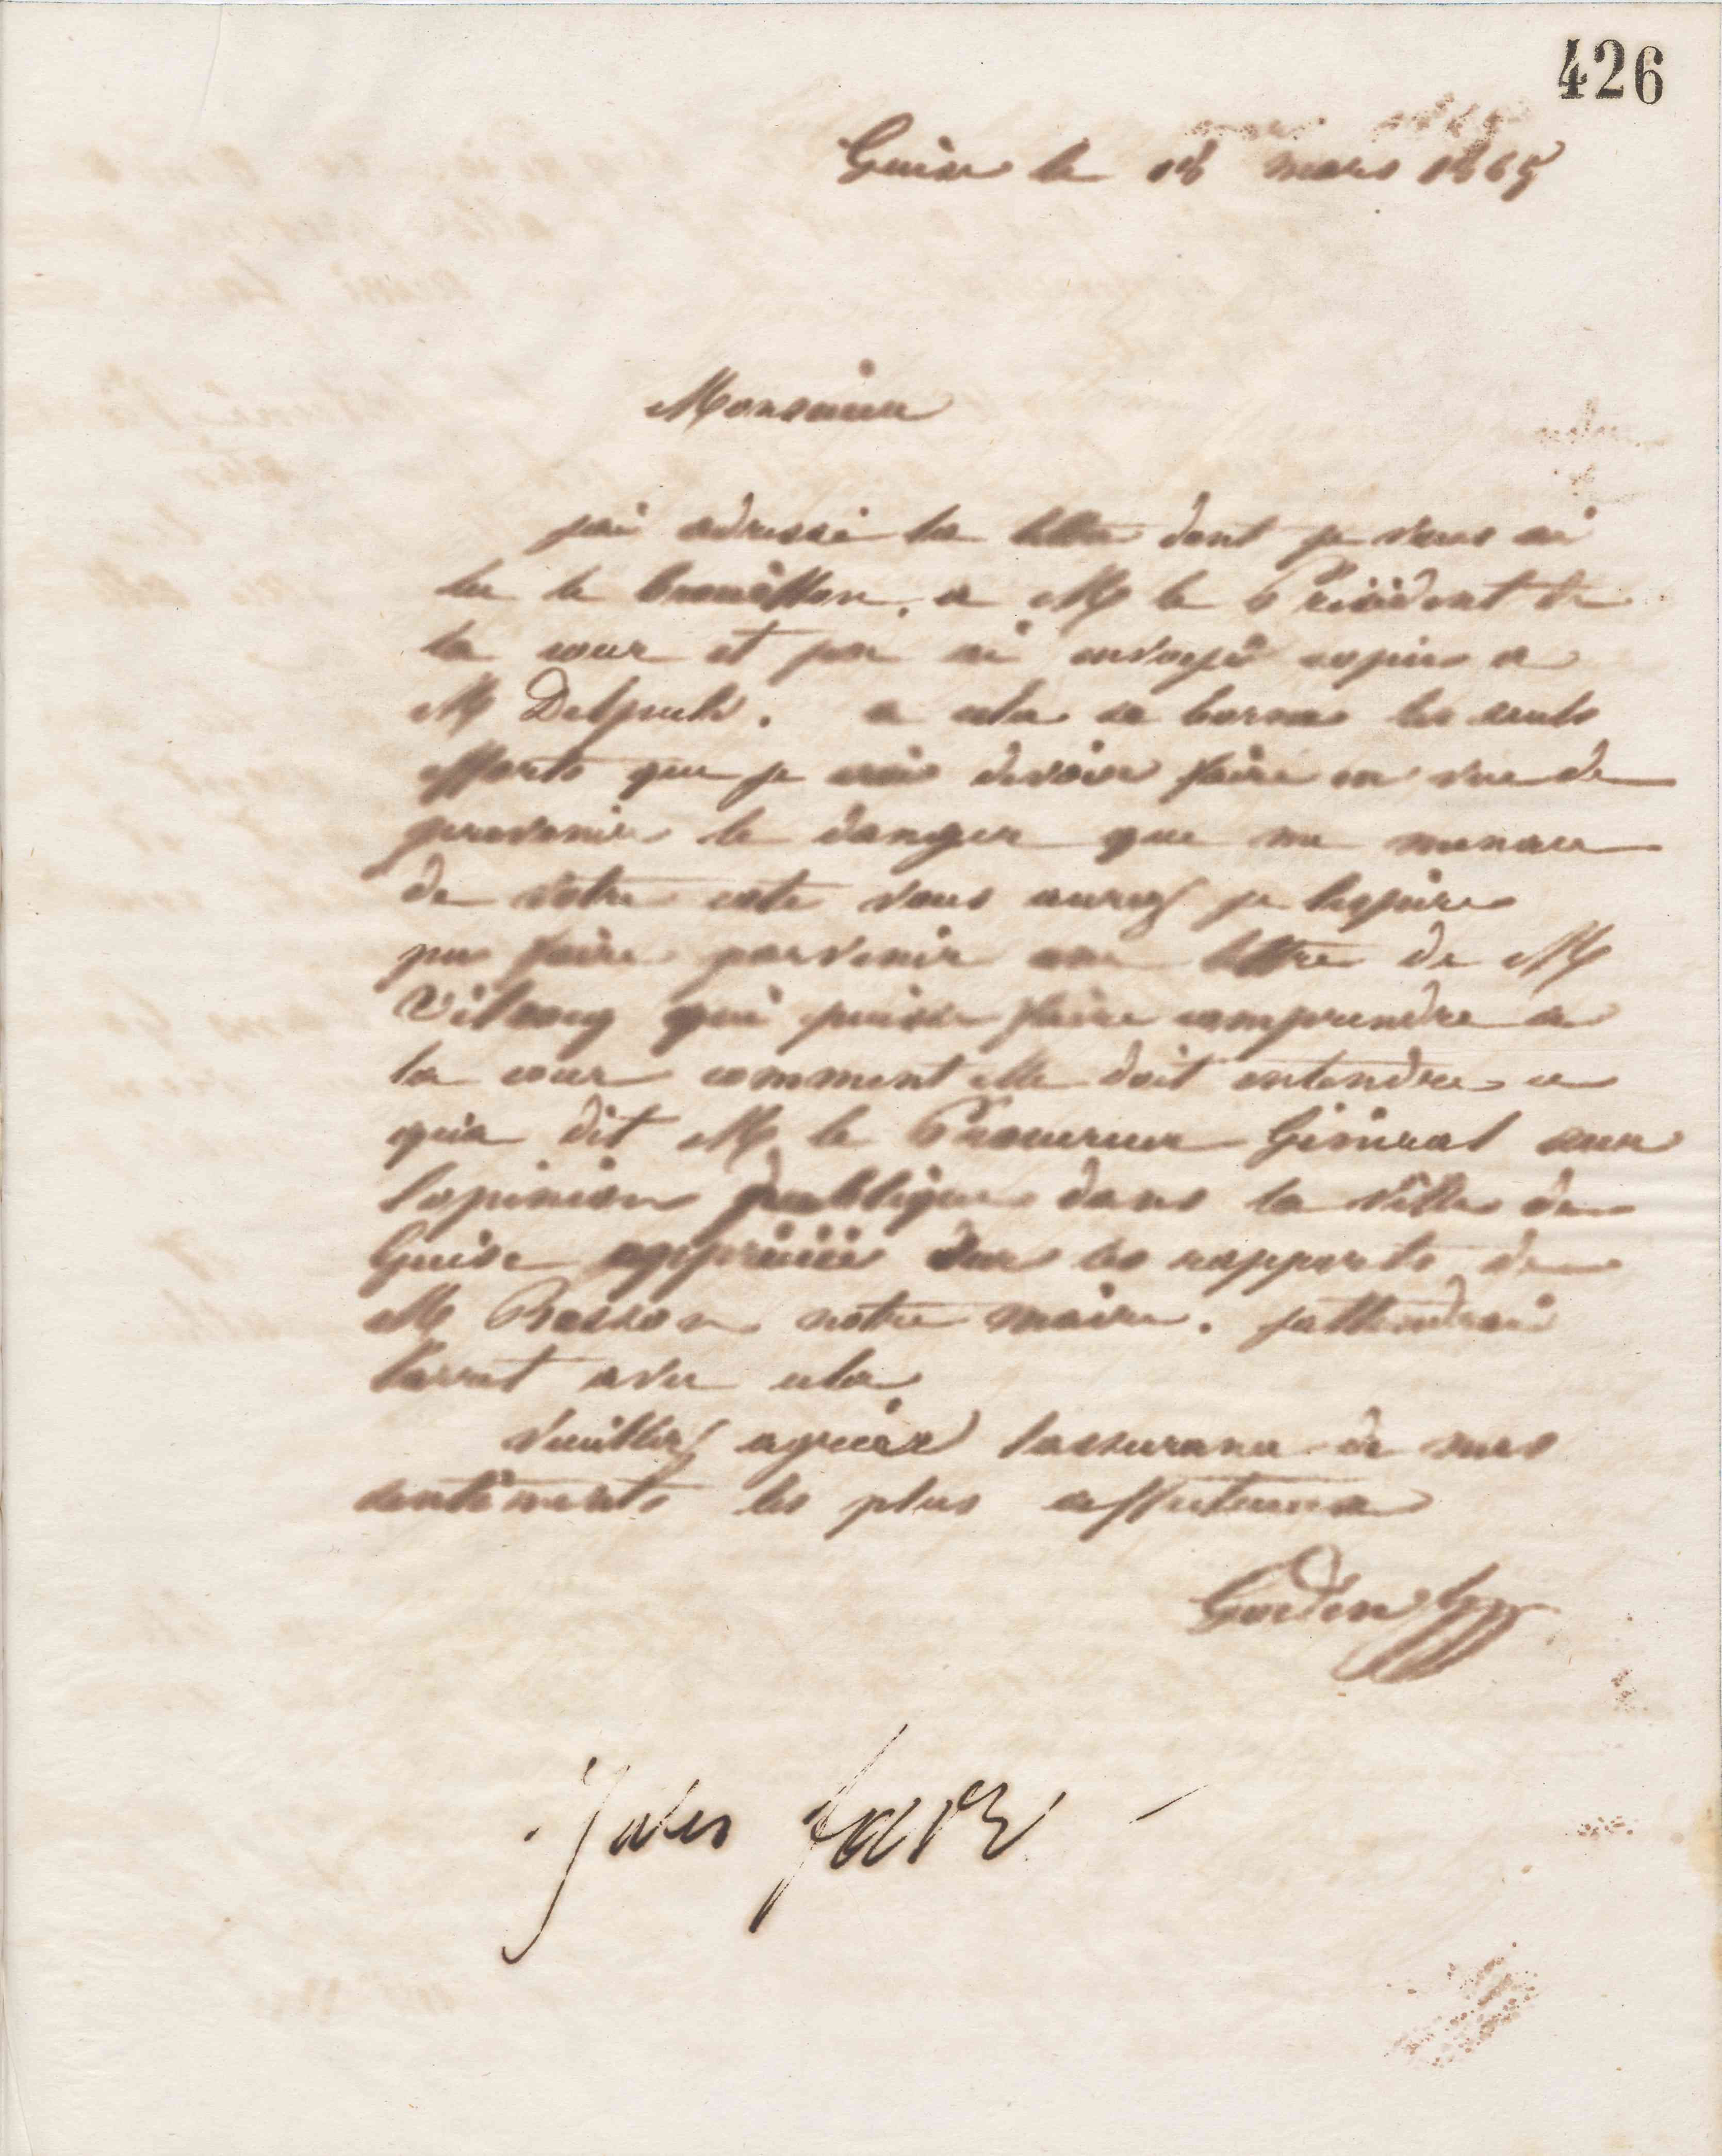 426
Guise le 18 mars 1865
Monsieur
jai adressé la lettre dont je vous ai
lu le brouillon, a M le Président de
la cour et jen ai envoyé copies a
M Delpech. a cela se borne les seuls
efforts que je crois devoir faire en vue de
prevenir le danger que me menace
de votre coté vous aurez je lespère
pu faire parvenir une lettre de M
qui puisse faire comprendre a
la cour comment elle doit entendre ce
qua dit M le Procureur Général sur
lopinion publique dans la ville de
Guise appréciée sur les rapports de
M Besson notre maire. jattendrai
larret avec cela
Veuillez agréer lassurance de mes
sentiments les plus affectueux
Godin
Jules favre